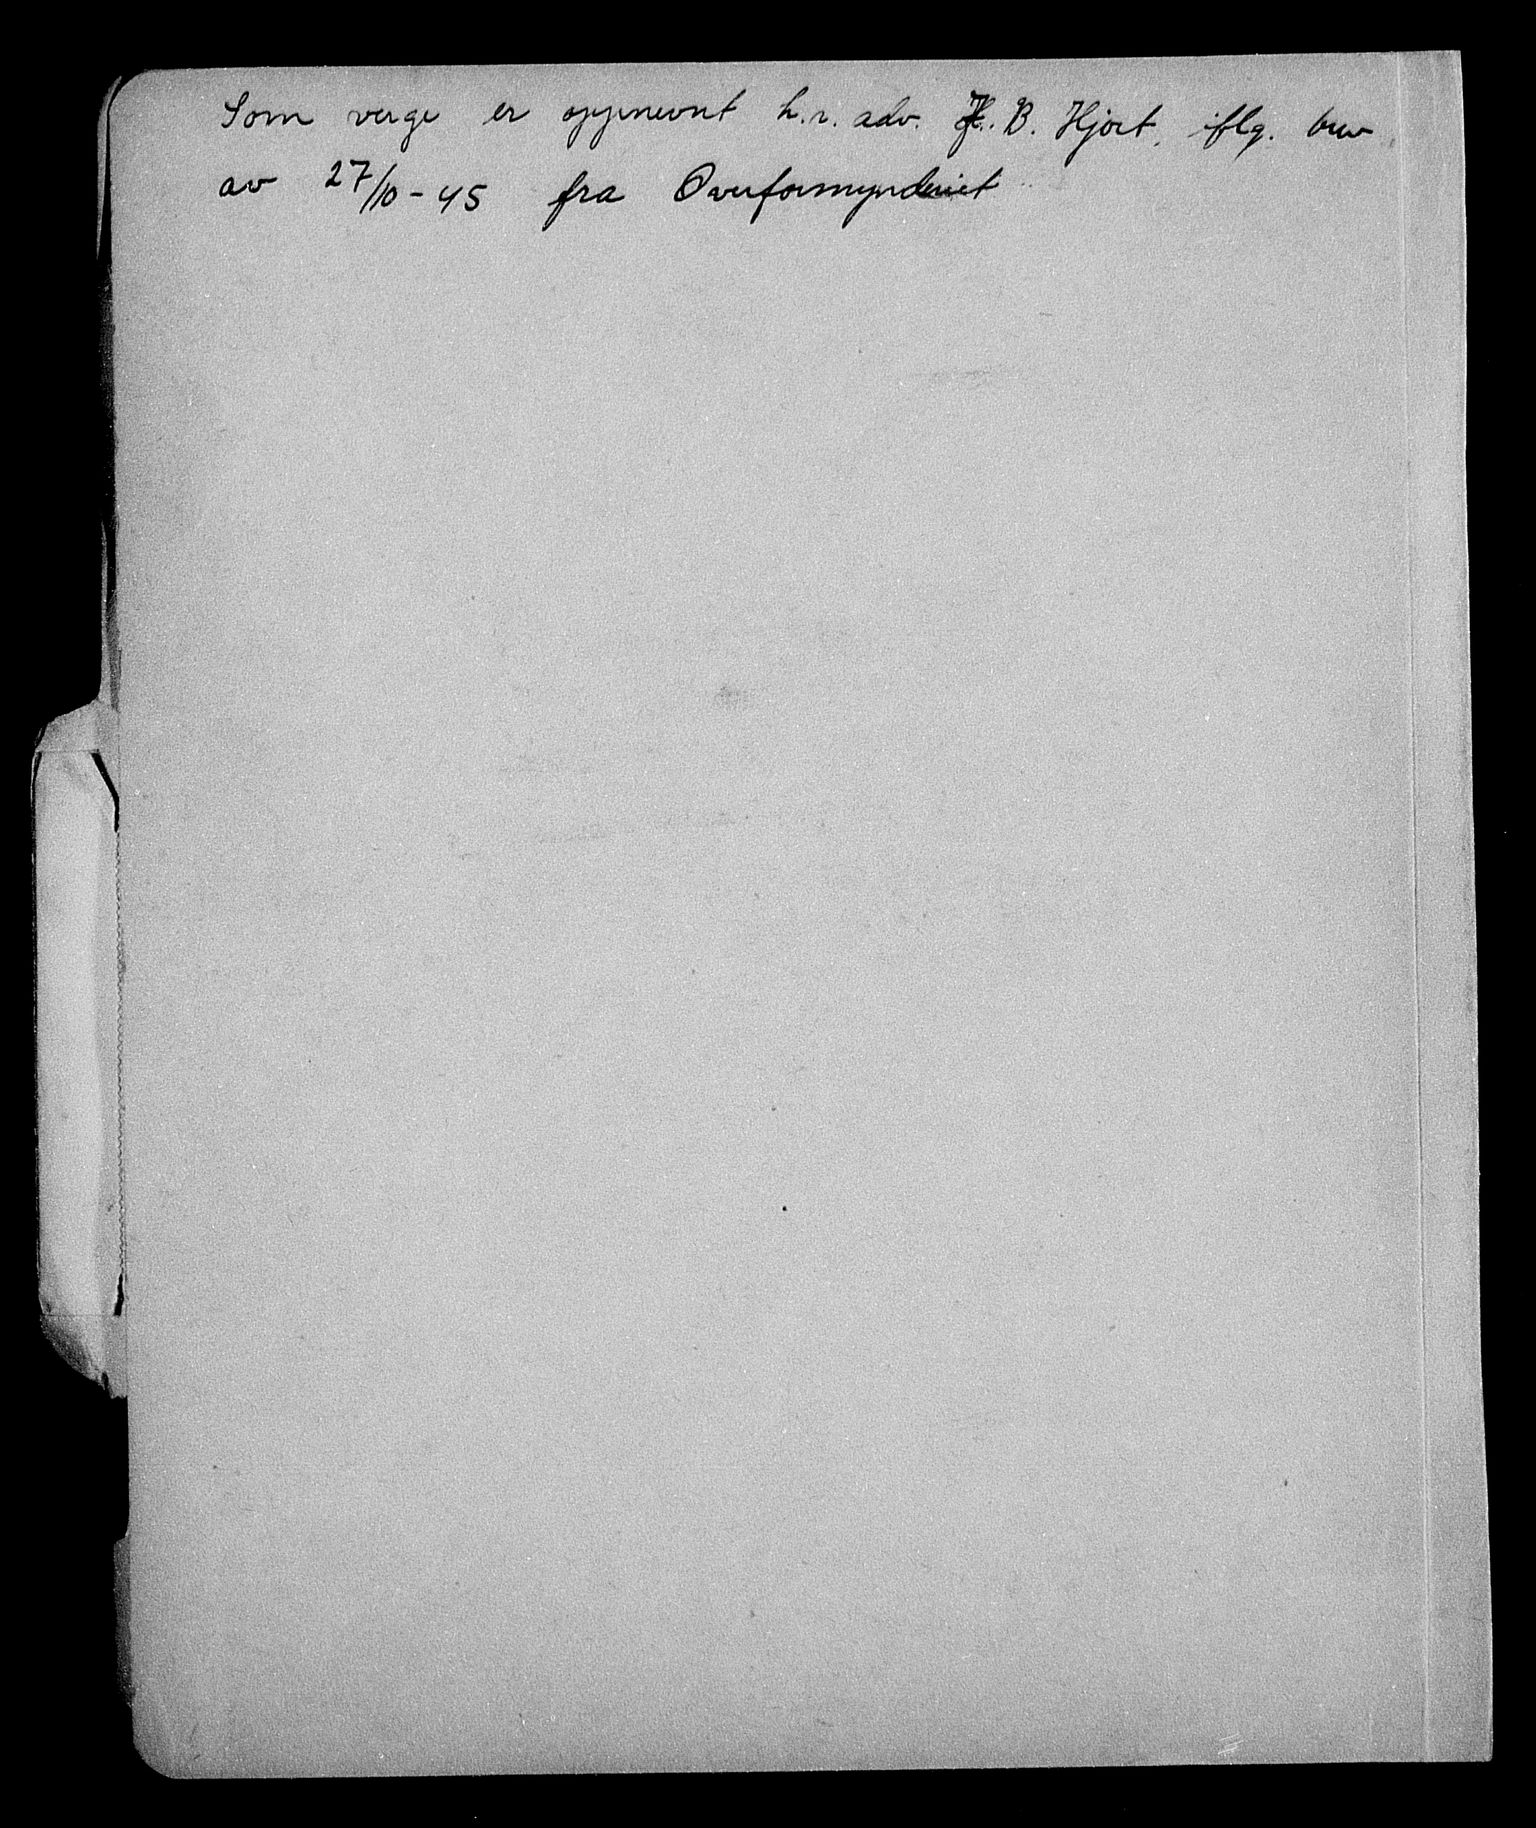 Som verge er oppnevnt h.r. adv. J. B. Hjort, iflg. brev
av 27/10-45 fra Overformynderiet